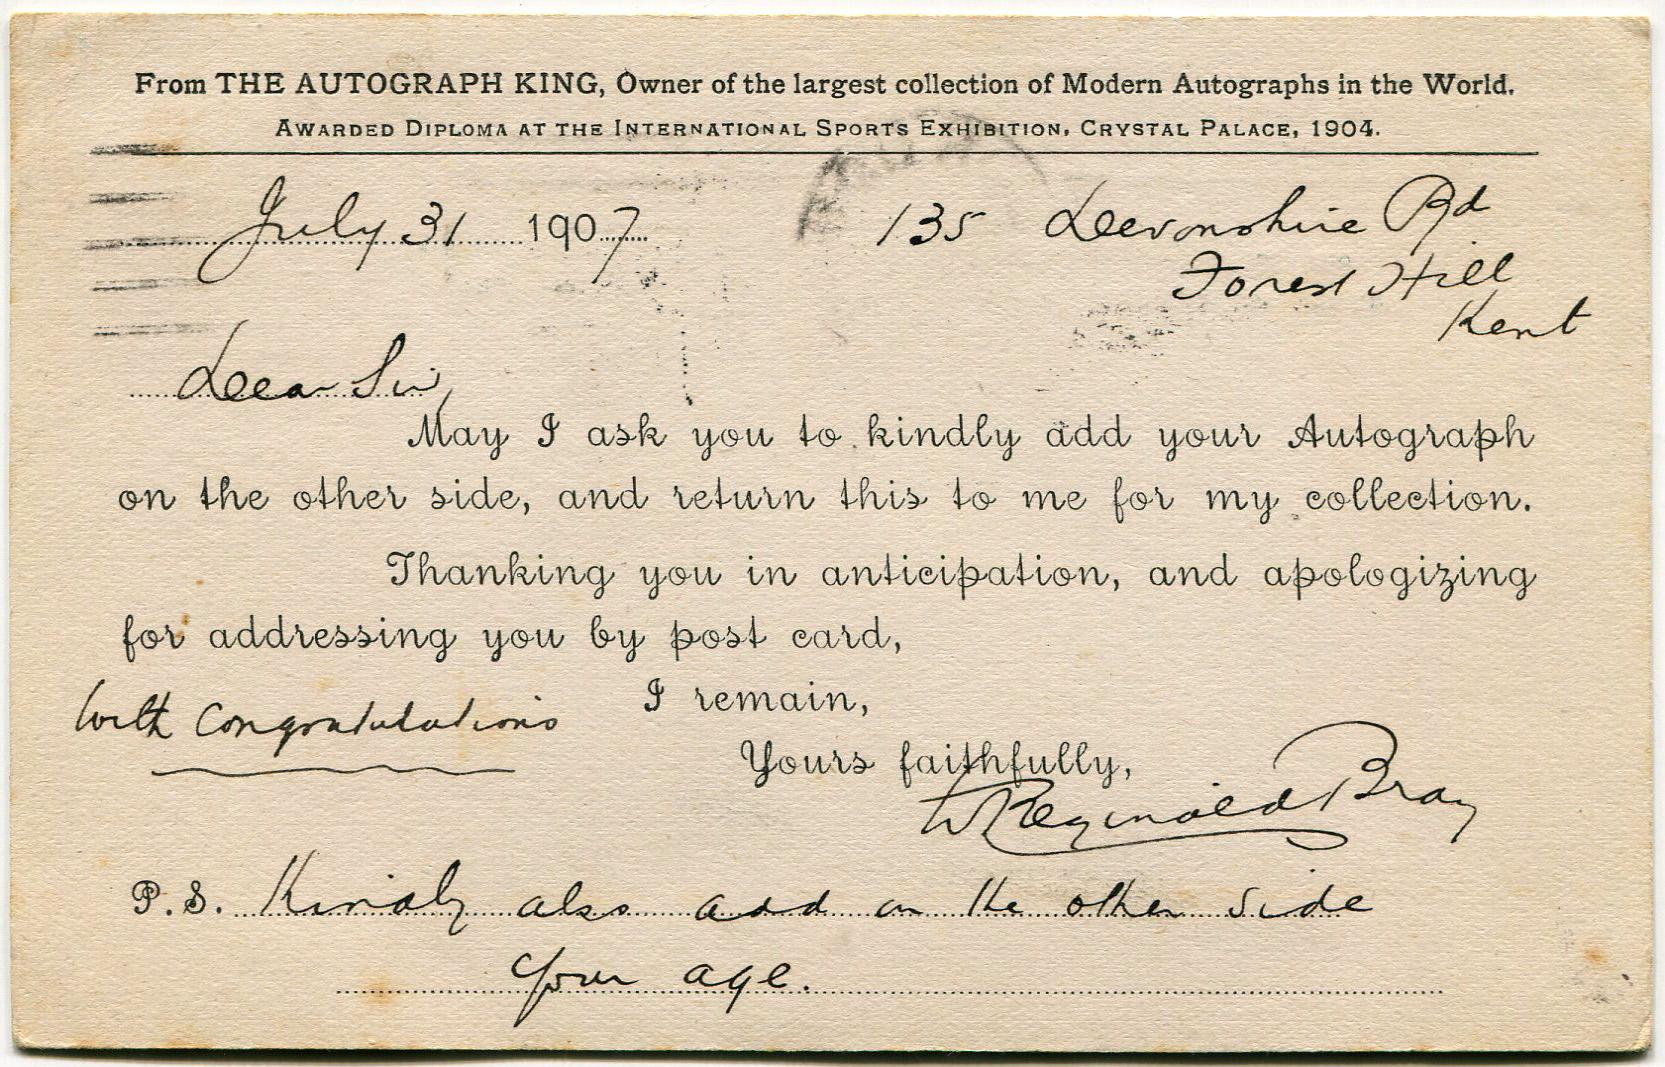 From THE AUTOGRAPH KING, Owner of the largest collection of Modern Autographs in the World.
AWARDED DIPLOMA AT THE INTERNATIONAL SPORTS EXHIBITION, CRYSTAL PALACE, 1904.
July 31 1907 135 Devonshire Rd
Forest Hill
Kent
Dear Sir,
May I ask you to kindly add your Autograph
on the other side, and return this to me for my collection.
Thanking you in anticipation, and apologizing
for addressing you by post card,
I remain,
With Congratulations
Yours faithfully,
W Reginald Bray
P.S. Kindly also add on the other side
your age.